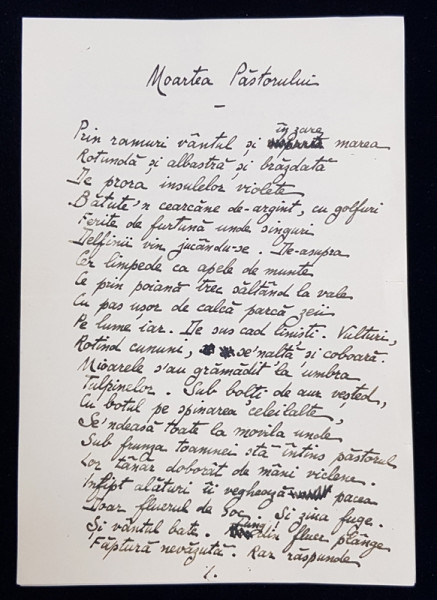 Moartea Păstorului
–
Prin ramuri vântul și în zare marea
Rotundă și albastră și brăzdată
De prora insulelor violete
Bătut'n cearcăne de-argint, cu golfuri
Ferite de furtună unde singuri
Delfinii vin jucându-se. De-asupra
Cer limpede ca apele de munte
Ce prin poiană trec săltând la vale
Cu pas ușor de calcă parcă zeii
Pe lume iar. De sus cad liniști. Vulturi,
Rotind cununi, se'nalță și coboară.
Mioarele s'au grămădit la umbra
Tulpinelor. Sub bolți de aur veșted,
Cu botul pe spinarea celeilalte,
Se'ndeasă toate la movila unde
Sub frunza toamnei stă întins păstorul
Lor tânăr doborât de mâni viclene.
Înfipt alături îi veghează pacea
Doar fluerul de soc. Și ziua fuge.
Și vântul bate. Lung din fluer plânge
Făptură nevăzută. Rar răspunde
./.